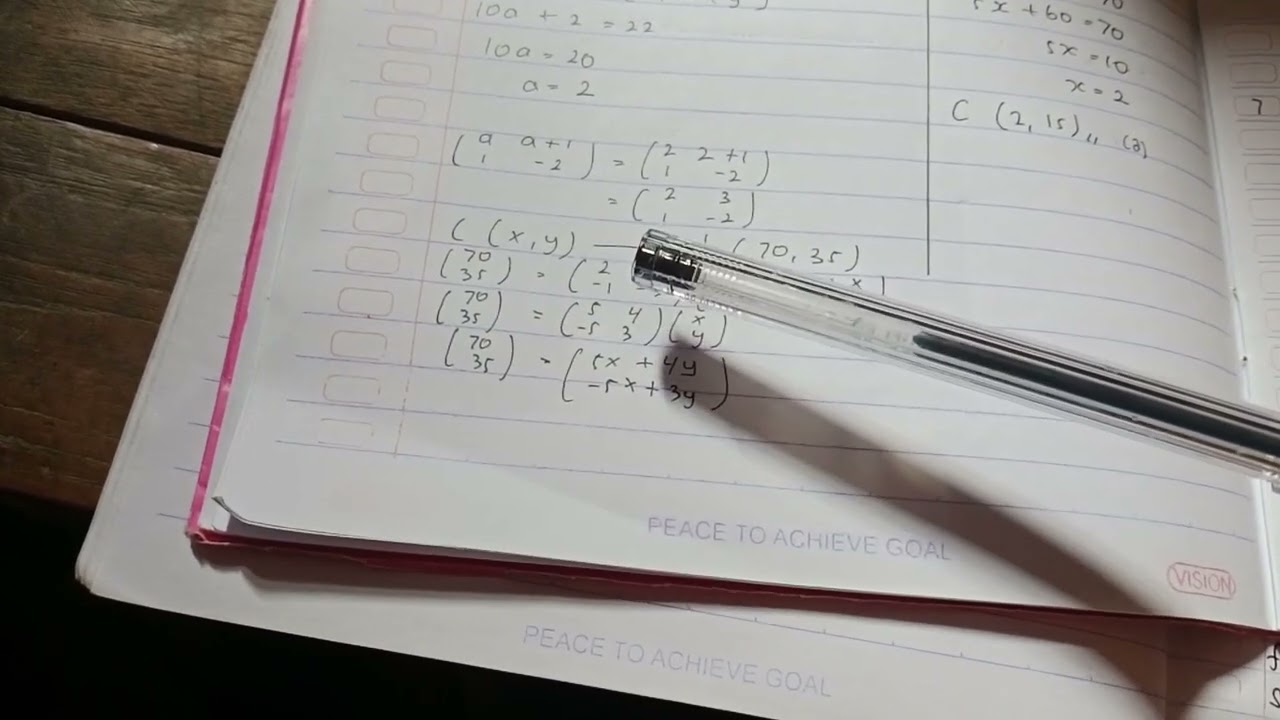 10a + 2 = 22
10a = 20
a = 2
( a a + 1 ) = ( 2 2 + 1 )
1 -2 1 -2
= ( 2 3 )
1 -2
C (x, y) (70, 35)
( 70 ) = ( 2
35 -1
( 70 ) = ( 5 4 ) ( x )
35 -5 3 y
( 70 ) = ( 5x + 4y )
35 -5x + 3y
5x + 60 = 70
5x = 10
x = 2
C (2, 15),, (3)
7
PEACE TO ACHIEVE GOAL
VISION
PEACE TO ACHIEVE GOAL